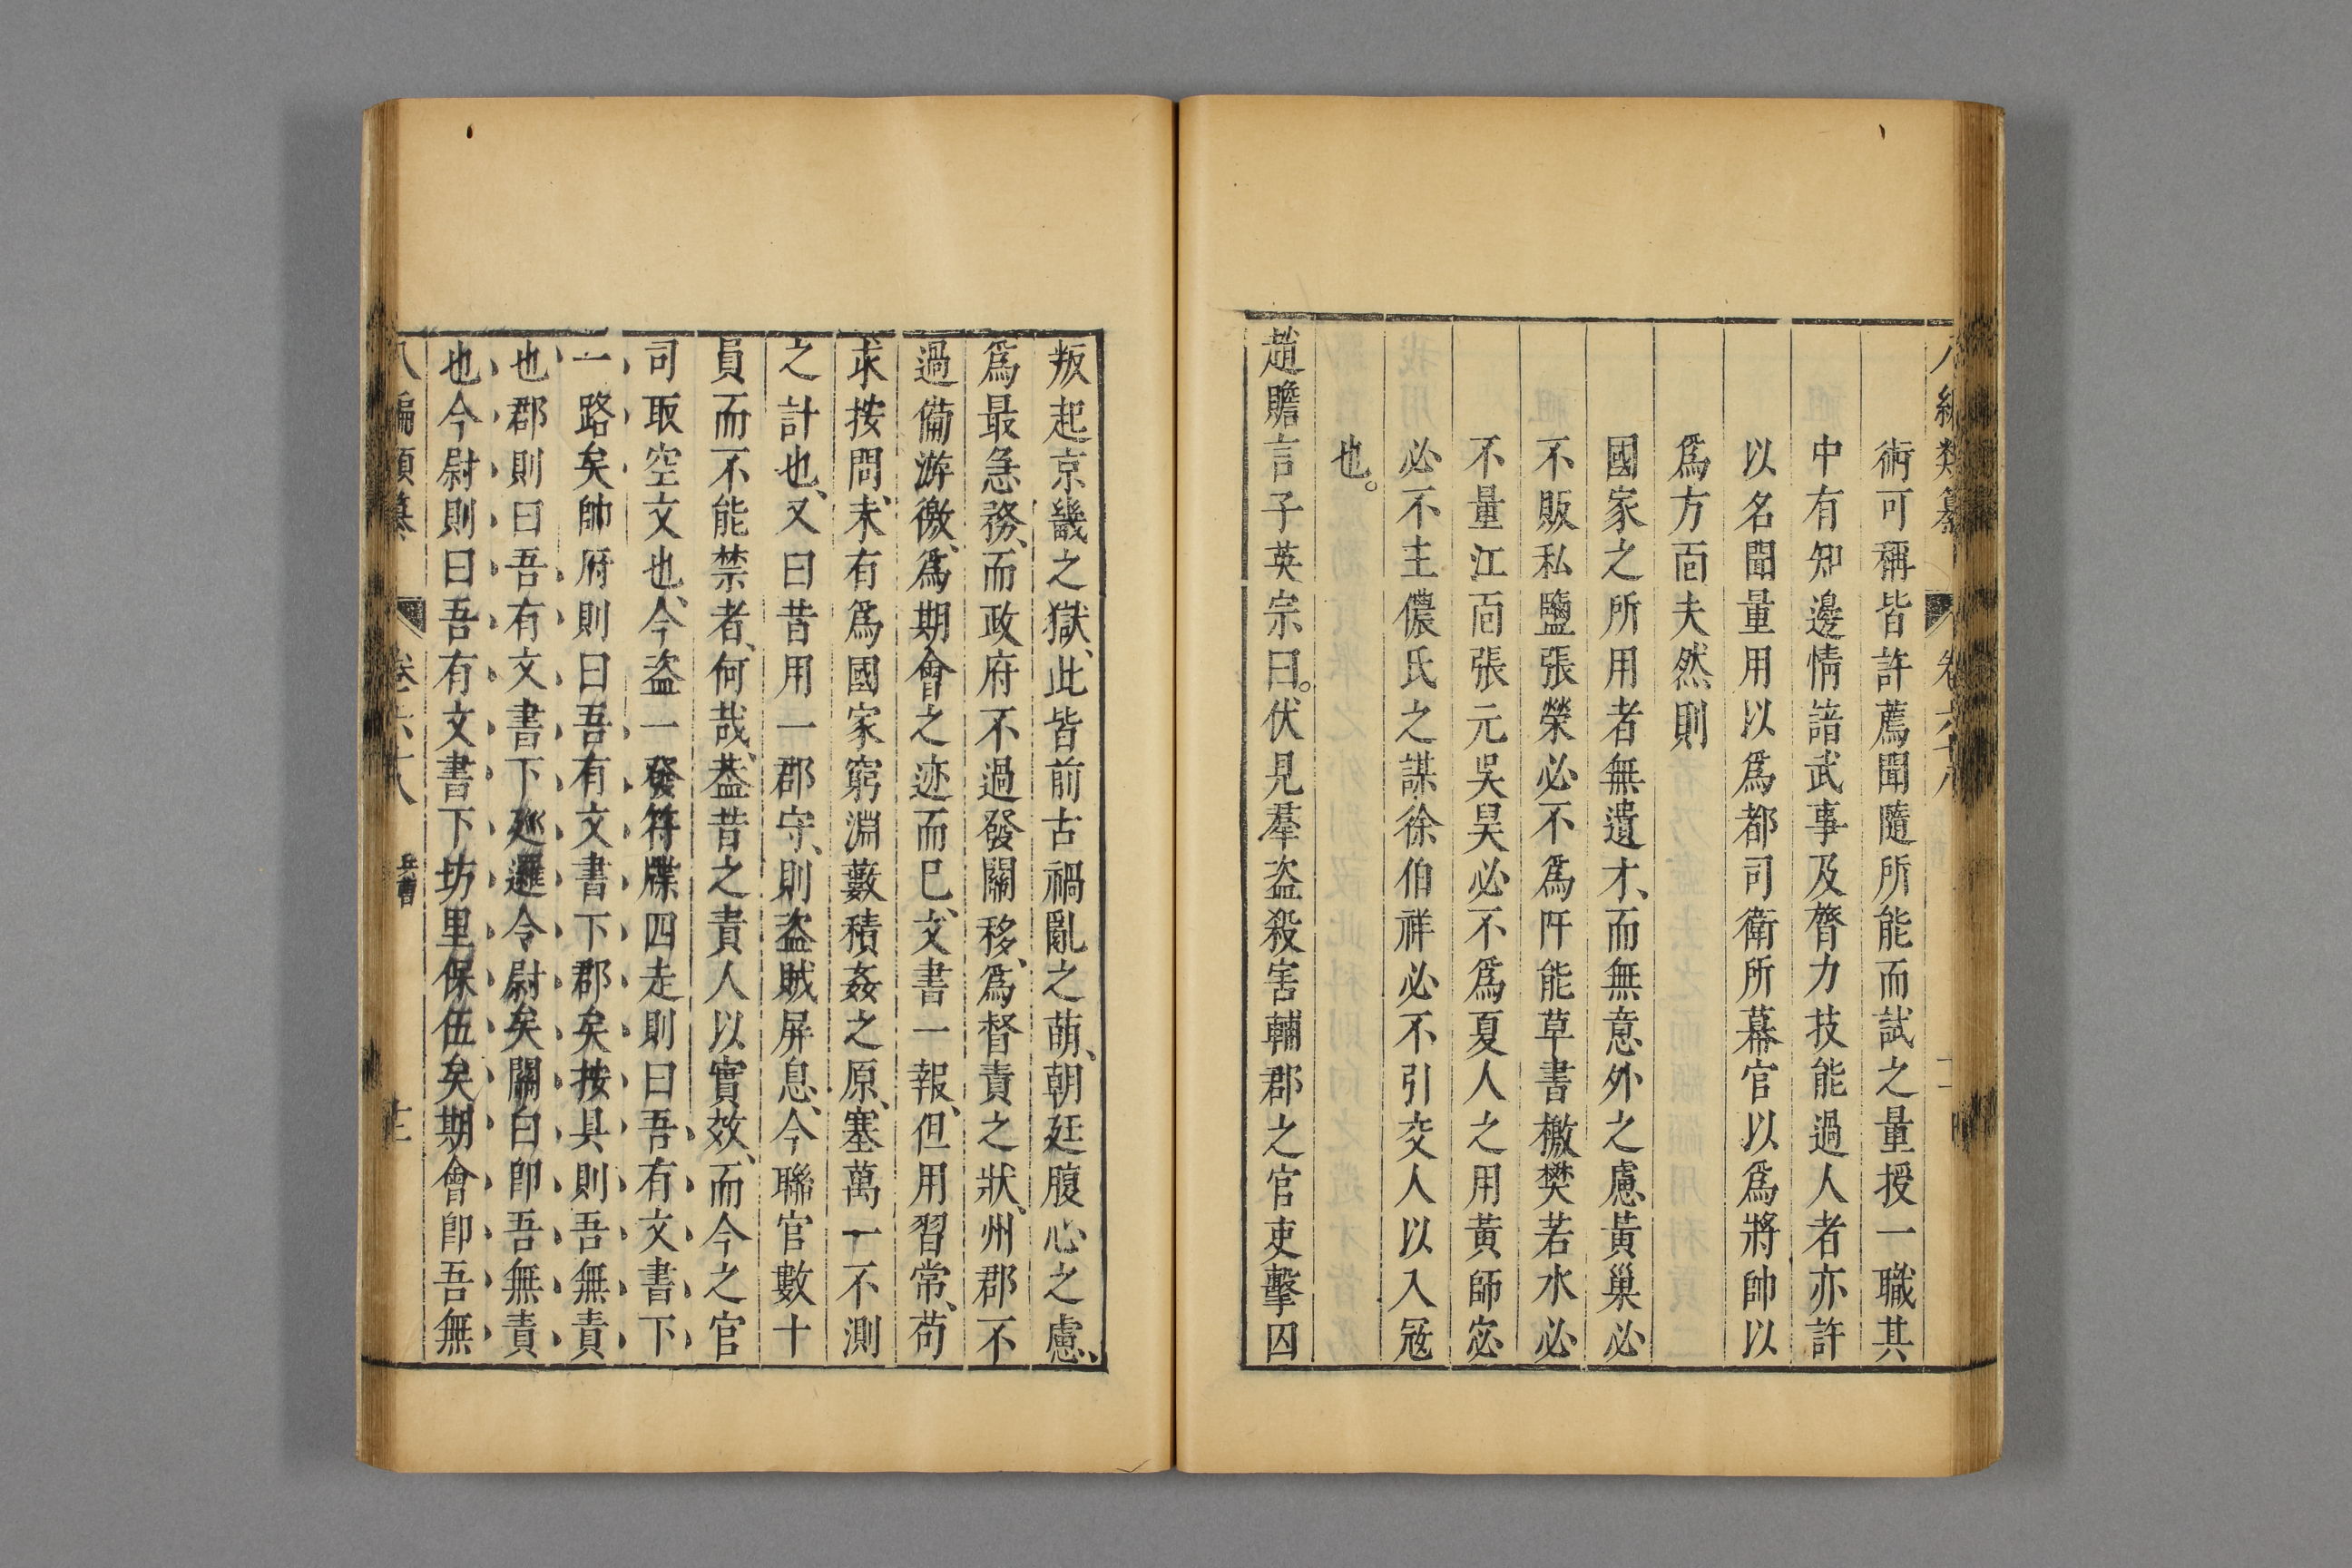 術可稱皆許薦聞隨所能而試之量授一職其
中有知邊情諳武事及膂力技能過人者亦許
以名聞量用以爲都司衛所幕官以爲將帥以
爲方面夫然則
國家之所用者無遺才、而無意外之慮黃巢必
不販私鹽張榮必不爲阡能草書檄樊若水必
不量江面張元吳昊必不爲夏人之用黃師宓
必不主儂氏之謀徐伯祥必不引交人以入冦
也。
趙贍言子英宗曰。伏見羣盗殺害輔郡之官吏擊囚
叛起京畿之獄、此皆前古禍亂之萌、朝廷腹心之慮、
爲最急務、而政府不過發關移、爲督責之狀。州郡不
過備游徼、爲期會之迹而巳、文書一報、但用習常、苟
求按問、未有爲國家窮淵藪積姦之原、塞萬一不測
之計也、又曰昔用一郡守、則盗賊屏息、今聯官數十
員而不能禁者、何哉、葢昔之責人以實效、而今之官
司取空文也、今盗一發符牒四走則曰吾有文書下
一路矣帥府則曰吾有文書下郡矣按具則吾無責
也郡則曰吾有文書下廵邏令尉矣關白卽吾無責
也今尉則曰吾有文書下坊里保伍矣期會卽吾無
八編類纂 卷六十八 兵曹